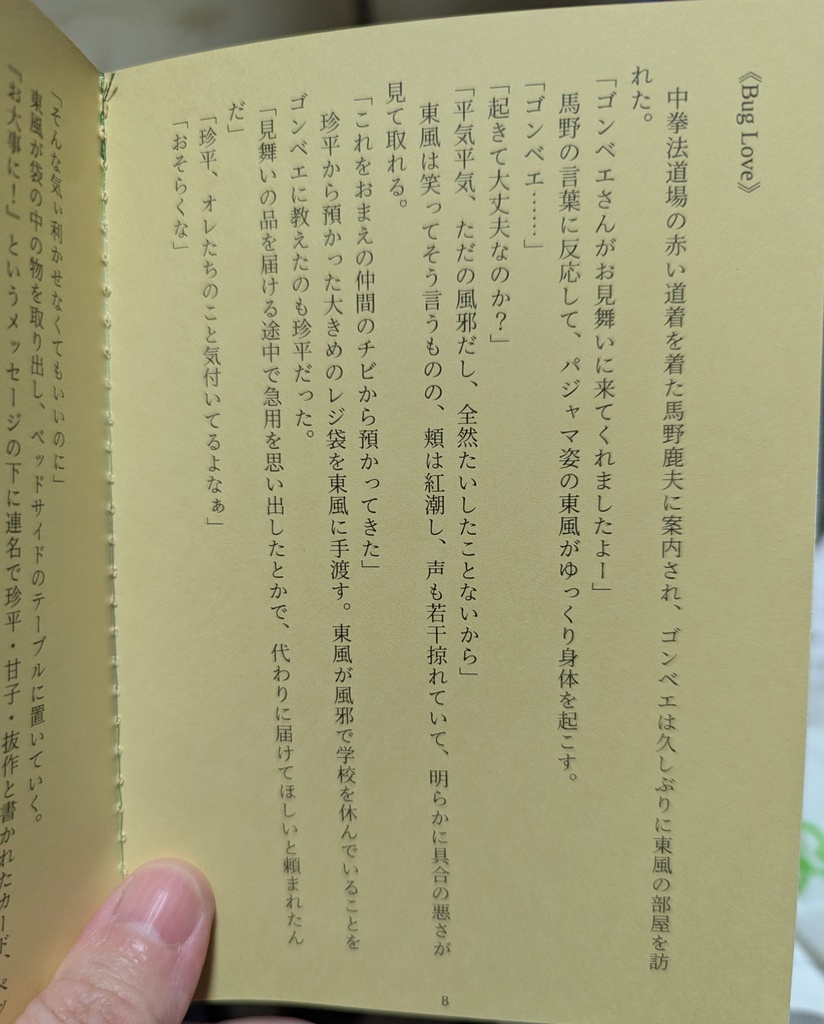 《Bug Love》
中拳法道場の赤い道着を着た馬野鹿夫に案内され、ゴンベエは久しぶりに東風の部屋を訪
れた。
「ゴンベエさんがお見舞いに来てくれましたよー」
馬野の言葉に反応して、パジャマ姿の東風がゆっくり身体を起こす。
「ゴンベエ……」
「起きて大丈夫なのか？」
「平気平気、ただの風邪だし、全然たいしたことないから」
東風は笑ってそう言うものの、頬は紅潮し、声も若干掠れていて、明らかに具合の悪さが
見て取れる。
「これをおまえの仲間のチビから預かってきた」
珍平から預かった大きめのレジ袋を東風に手渡す。東風が風邪で学校を休んでいることを
ゴンベエに教えたのも珍平だった。
「見舞いの品を届ける途中で急用を思い出したとかで、代わりに届けてほしいと頼まれたん
だ」
「珍平、オレたちのこと気付いてるよなぁ」
「おそらくな」
8
「そんな気ぃ利かせなくてもいいのに」
東風が袋の中の物を取り出し、ベッドサイドのテーブルに置いていく。
『お大事に！』というメッセージの下に連名で珍平・甘子・抜作と書かれたカード、ペッ